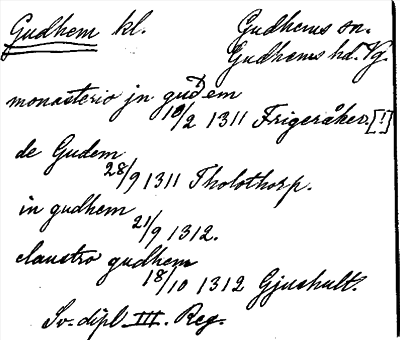 Gudhem kl. Gudhems sn.
Gudhems hd. Vg.
monasterio jn guđem
10/2 1311 Frigeråker [!]
de Gudem
28/9 1311 Tholothorp.
in gudhem
21/9 1312.
claustro gudhem
18/10 1312 Gjushult.
Sv. dipl III. Reg.